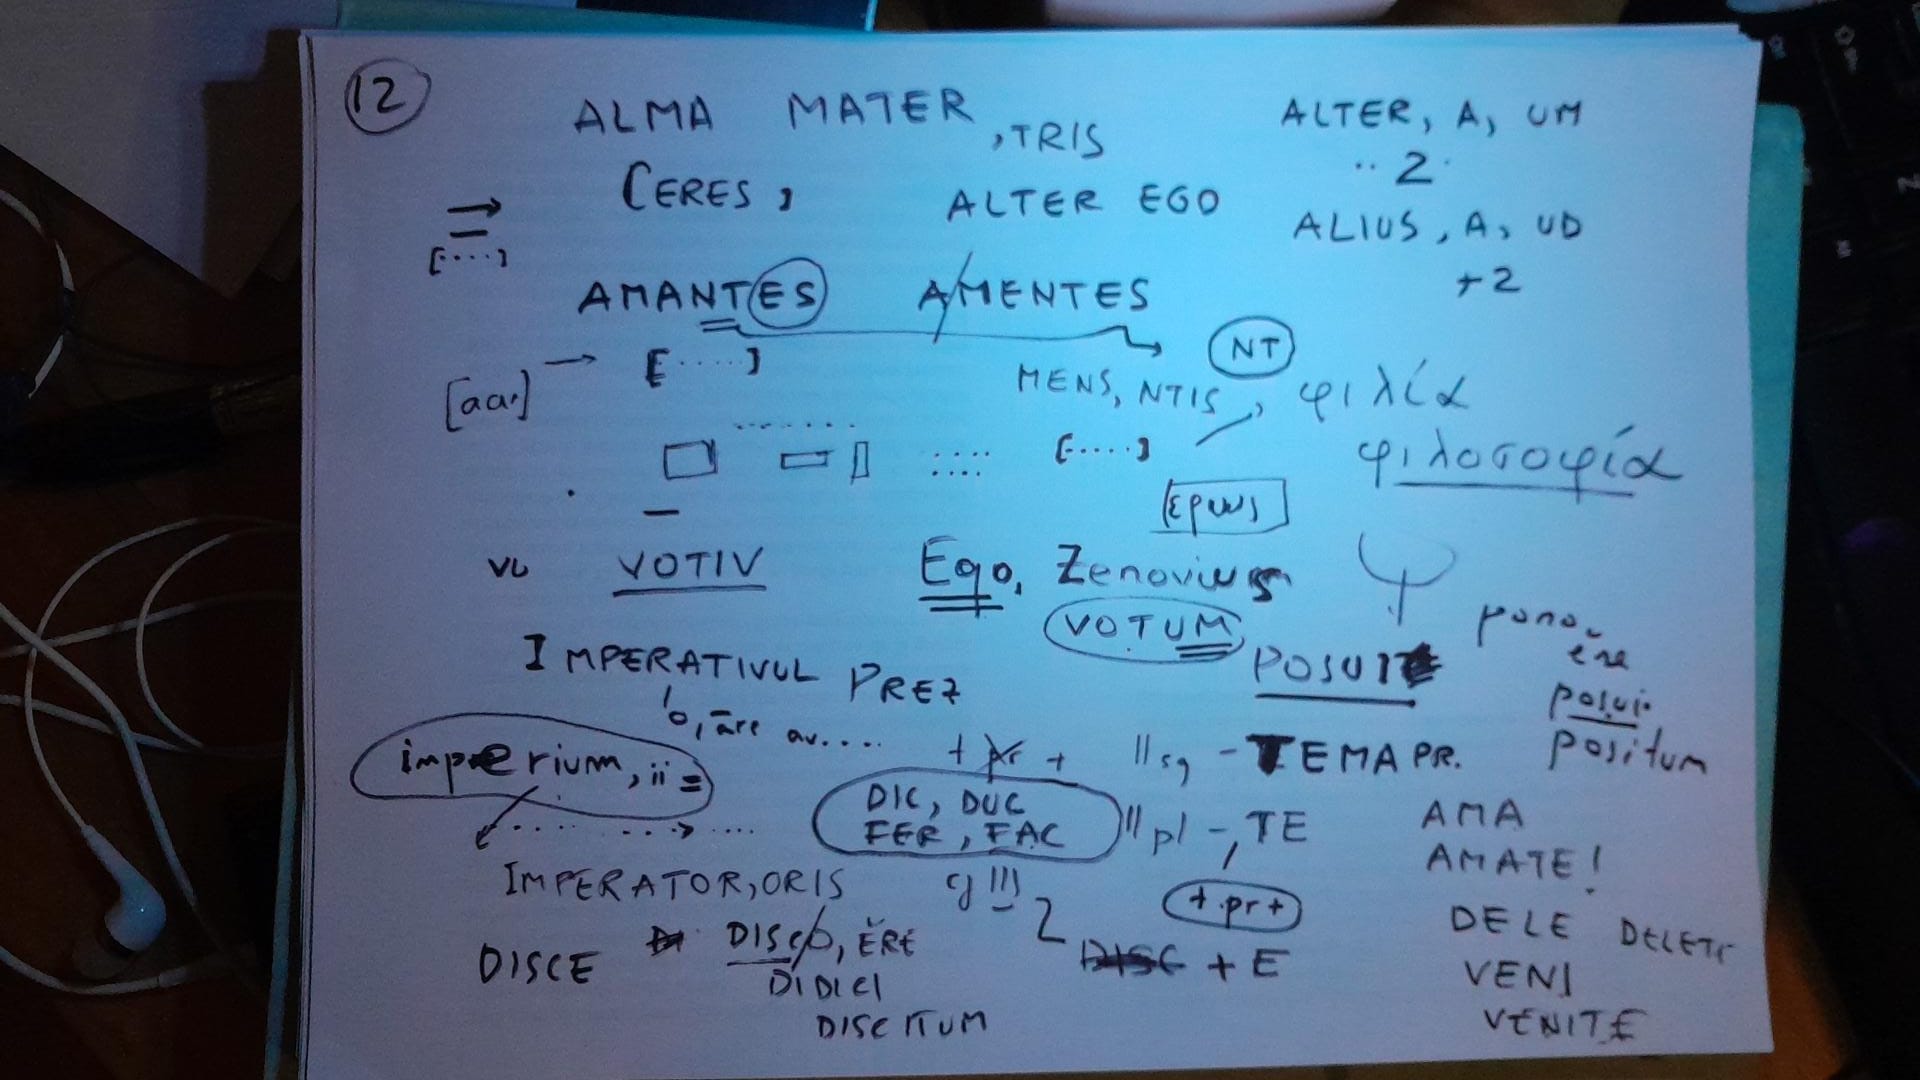 12
ALMA MATER, TRIS
ALTER, A, UM
2
CERES,
ALTER EGO
ALIUS, A, UD
+2
[....]
AMANTES AMENTES
NT
[.....]
MENS, NTIS,
φιλία
[....]
φιλοσοφία
ερως
VOTIV
Ego, Zenovius
VOTUM
POSUIT
pono, ere
posui
positum
IMPERATIVUL PREZ
o, āre av....
imperium, ii =
+ pr +
II sg - TEMA PR.
DIC, DUC
FER, FAC
II pl -, TE
AMA
AMATE!
IMPERATOR, ORIS
+ pr +
DISCE
DISCO, ĔRE
DIDICI
DISCITUM
+ E
DELE DELETE
VENI
VENITE